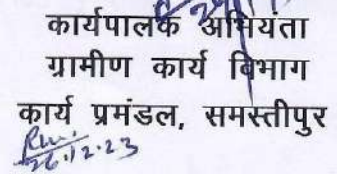 कार्यपालक अभियंता
ग्रामीण कार्य विभाग
कार्य प्रमंडल, समस्तीपुर
26.12.23